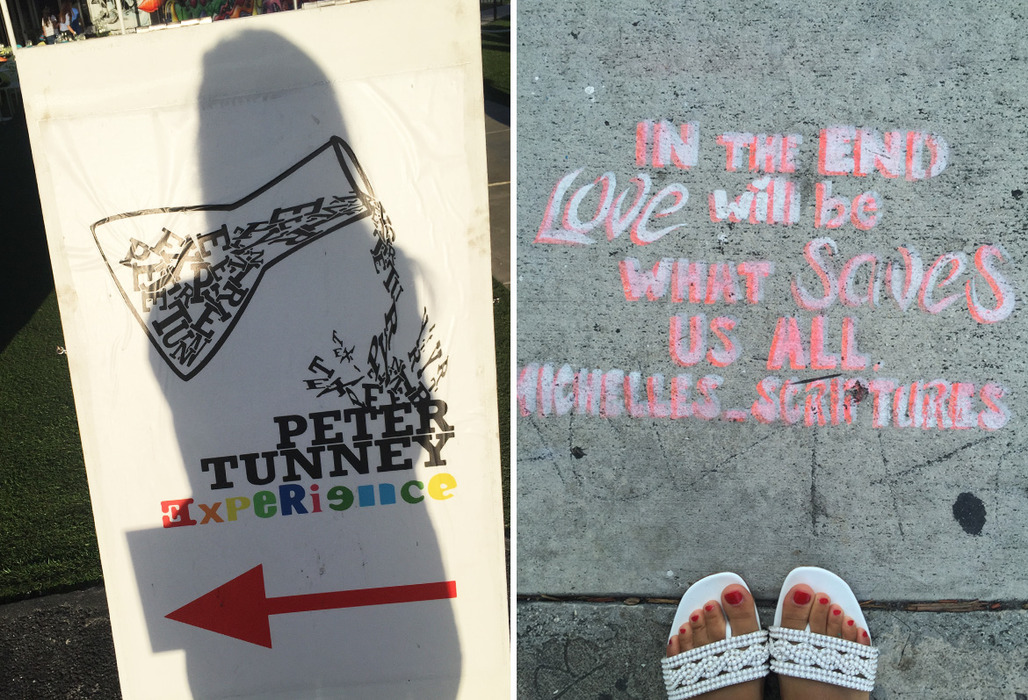 PETER
TUNNEY
ExpeRience
IN THE END
Love will be
WHAT Saves
US ALL.
MICHELLES_SCRIPTURES